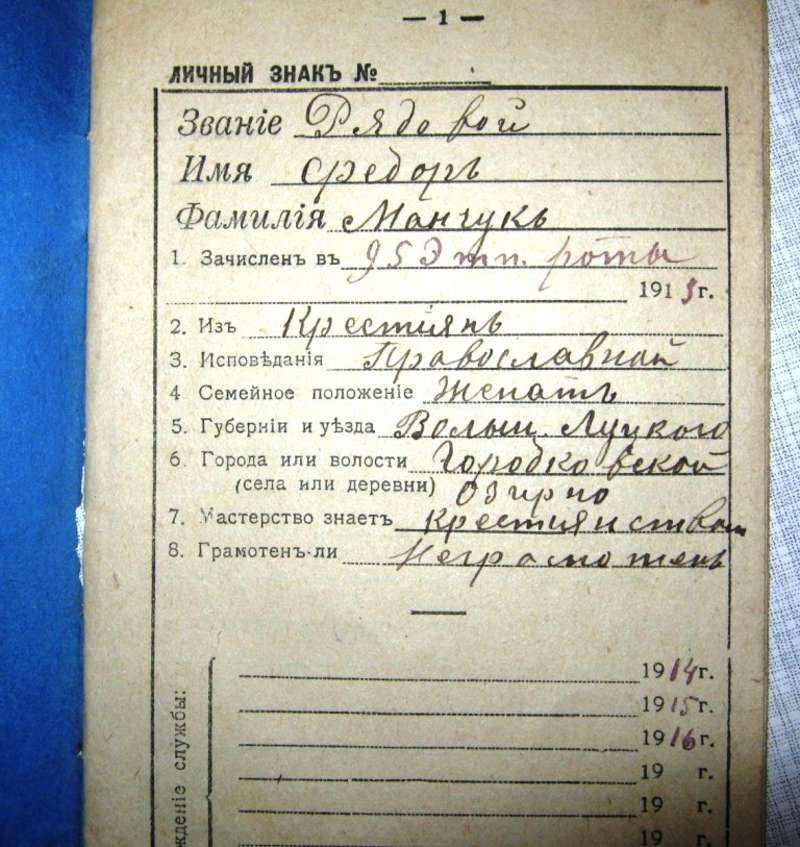 — 1 —
ЛИЧНЫЙ ЗНАКЪ №
Званіе Рядовой
Имя Федоръ
Фамилія Манчукъ
1. Зачисленъ въ 95 Этп. роты
1915 г.
2. Изъ Крестиянъ
3. Исповѣданія Православнай
4 Семейное положеніе Женатъ
5. Губерніи и уѣзда Волын. Луцкого
6. Города или волости Городковской
(села или деревни) Озирно
7. Мастерство знаетъ Крестиянством
8. Грамотенъ-ли Неграмотенъ
1914 г.
1915 г.
1916 г.
19 г.
19 г.
19 г.
ждение службы: